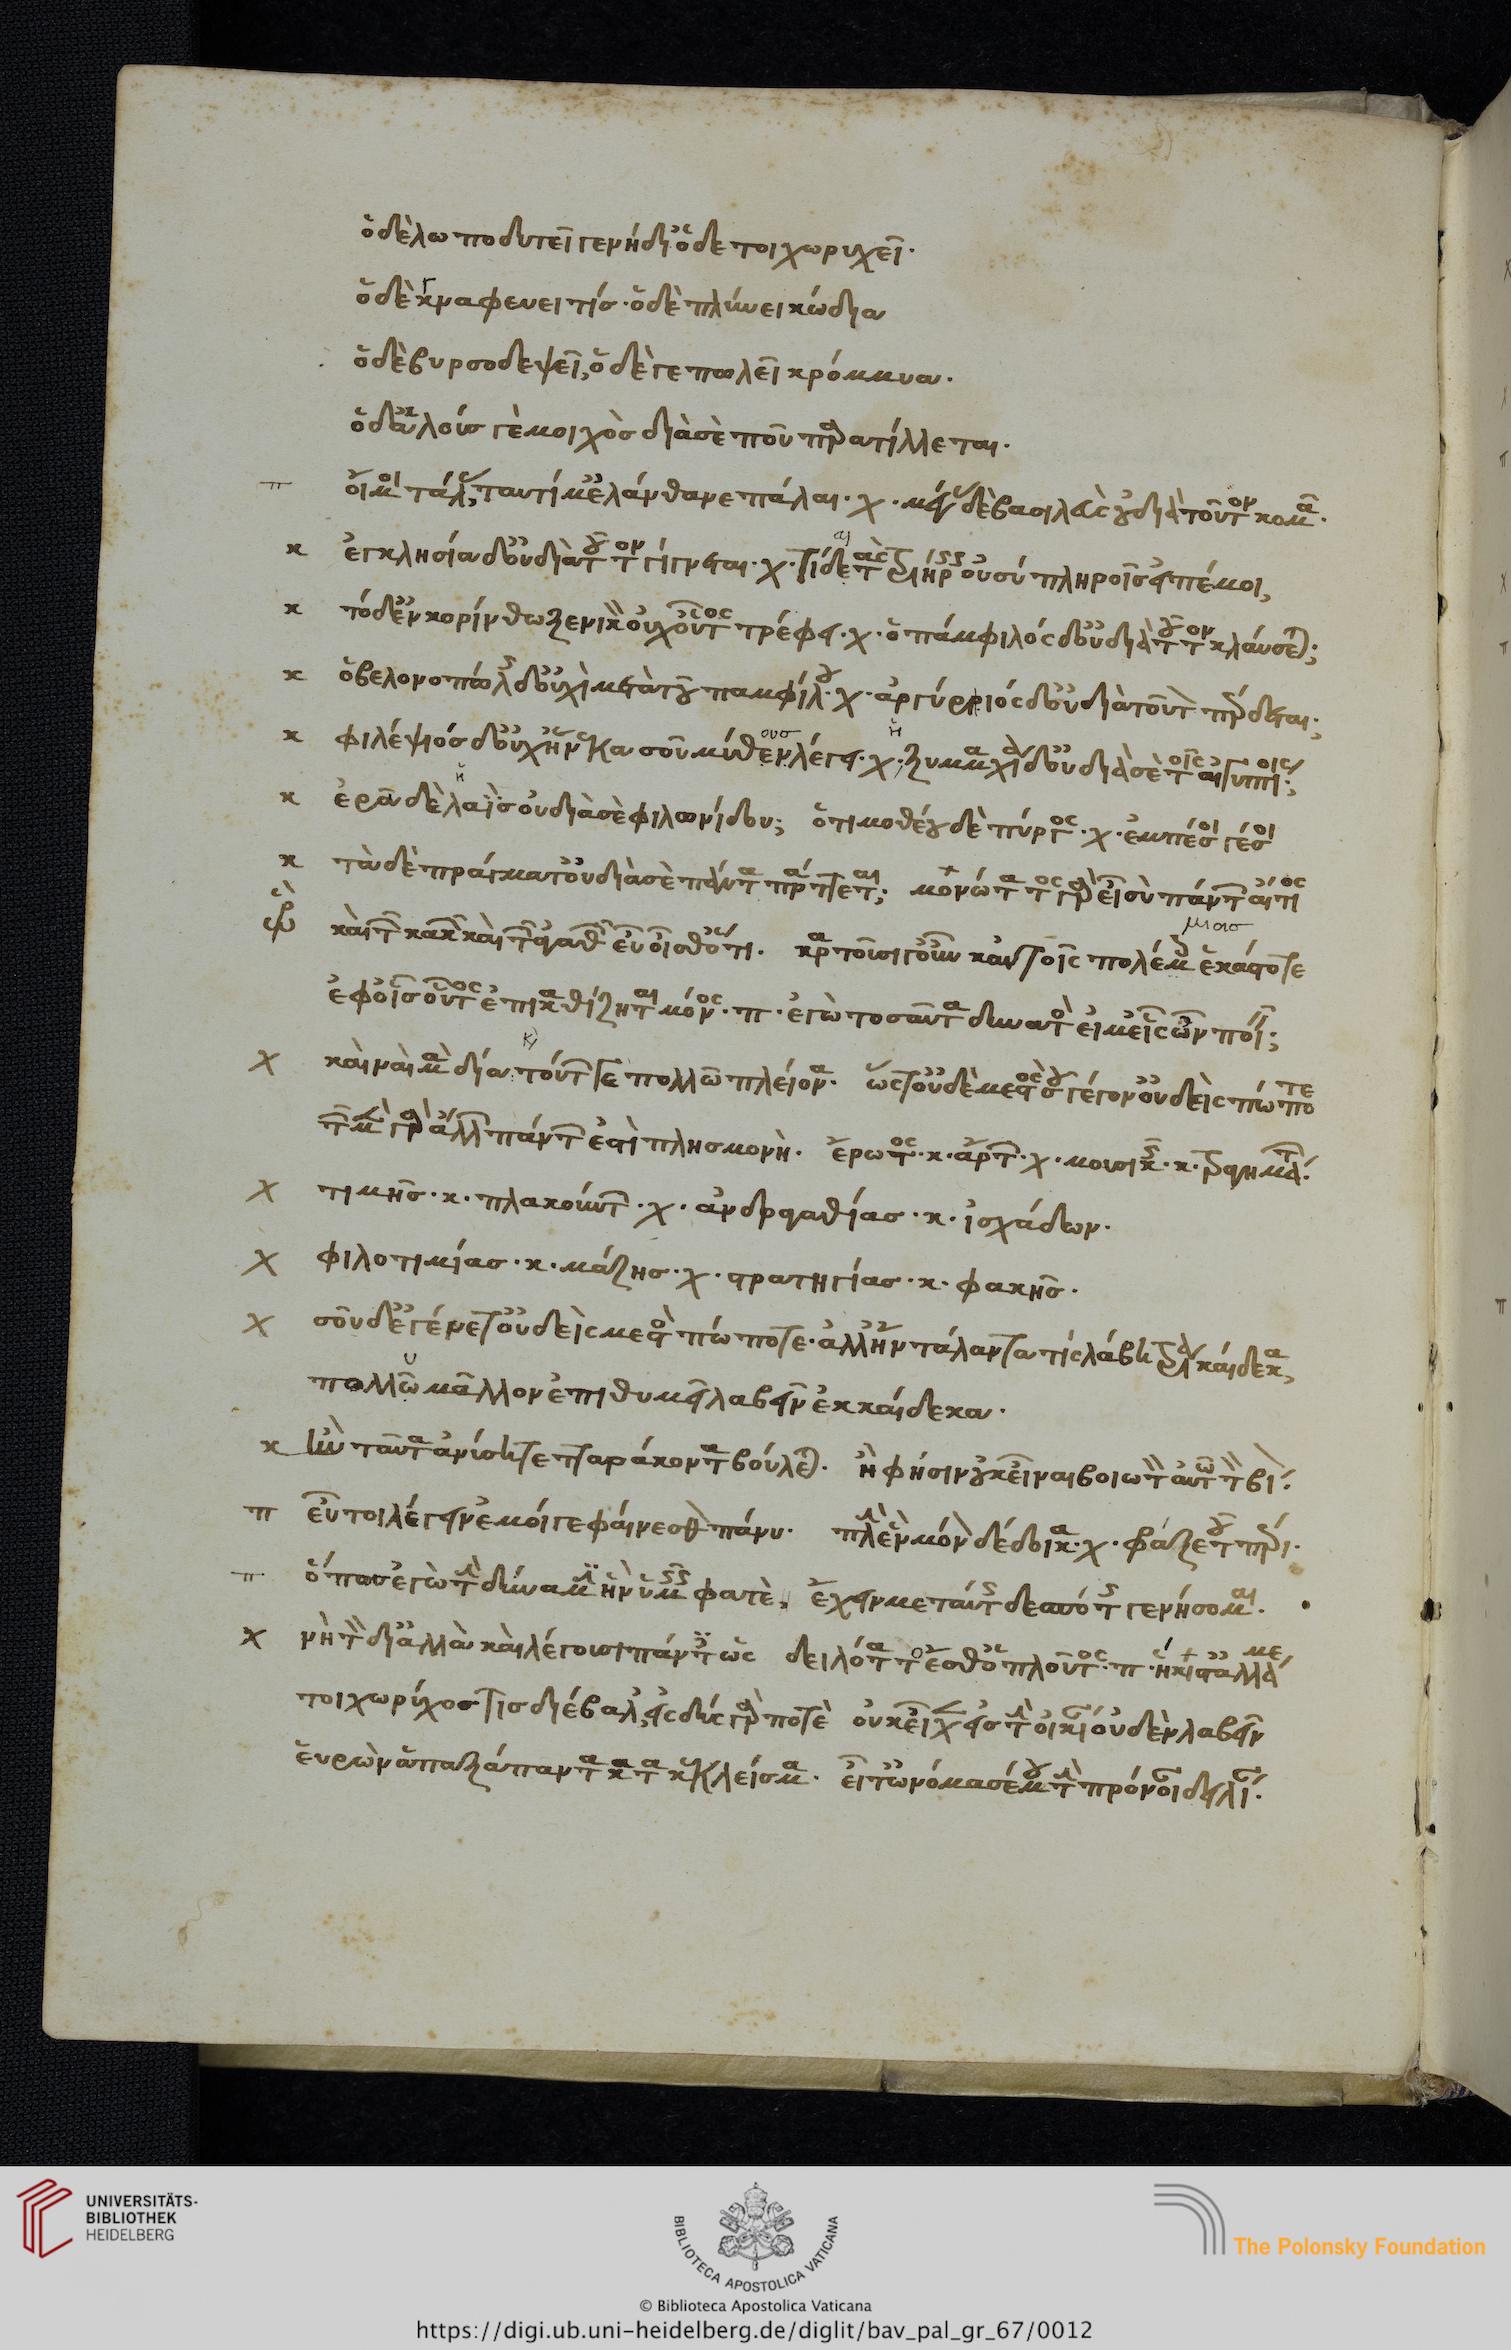 ὁ δὲ λωποδυτεῖ γε νὴ δί' ὁ δὲ τοιχωρυχεῖ·
ὁ δὲ κναφεύει τίς· ὁ δὲ πλύνει κώδια
ὁ δὲ βυρσοδεψεῖ, ὁ δέ γε πωλεῖ κρόμμυα·
ὁ δ' ἁλούς γε μοιχὸς διὰ σέ που παρατίλλεται·
π οἴμοι τάλας, ταυτί μ' ἐλάνθανε πάλαι· χ· μέγας δὲ βασιλεὺς οὐ διὰ τοῦτον κομᾶ·
κ ἐκκλησία δ' οὐ διὰ τοῦτον γίγνεται· χ· τί δὲ τὰς τριήρεις οὐ σὺ πληροῖς εἰπέ μοι,
κ τὸ δ' ἐν κορίνθω ξενικὸν οὐχ οὗτος τρέφει· χ· ὁ πάμφιλος δ' οὐ διὰ τοῦτον κλαύσεται;
κ ὁ βελονοπώλης δ' οὐχὶ μετὰ τοῦ παμφίλου· χ· ἀργύρριος δ' οὐ διὰ τοῦτον πέρδεται;
κ φιλέψιος δ' οὐχ ἕνεκα σοῦ μύθους λέγει· χ· ξυμμαχία δ' οὐ διὰ σὲ τοῖς αἰγυπτίοις;
κ ἐρᾶ δὲ λαῒς οὐ διὰ σὲ φιλωνίδου; ὁ τιμοθέου δὲ πύργος· χ· ἐμπέσοι γέ σοι
κ τὰ δὲ πράγματ' οὐ διὰ σὲ πάντα πράττεται; μονώτατος γὰρ εἶ σὺ πάντων αἴτιος
καὶ τῶν κακῶν καὶ τῶν ἀγαθῶν εὖ οἶσθ' ὅτι· κρατοῦσι γοῦν κἀν τοῖς πολέμοις ἑκάστοτε
ἐφ' οἷς οὗτος ἐπικαθίζηται μόνος· π· ἐγὼ τοσαῦτα δυνατός εἰμ' εἷς ὢν ποιεῖν;
χ καὶ ναὶ μὰ δία τούτων γε πολλῶ πλείονα· ὥστ' οὐδὲ μεστὸς σοῦ γέγον' οὐδεὶς πώποτε
τῶν μὲν γὰρ ἄλλων πάντων ἐστὶ πλησμονή· ἔρωτος· κ· ἄρτων· χ· μουσικῆς· κ· τραγημάτων·
χ τιμῆς· κ· πλακούντων· χ· ἀνδραγαθίας· κ· ἰσχάδων·
χ φιλοτιμίας· κ· μάζης· χ· στρατηγίας· κ· φακῆς·
χ σοῦ δ' ἐγένετ' οὐδεὶς μεστὸς πώποτε· ἀλλ' ἢν τάλαντά τις λάβη τριακαίδεκα,
πολλῶ μᾶλλον ἐπιθυμεῖ λαβεῖν ἑκκαίδεκα·
κ ἂν ταῦτα ἀνύση τετταράκοντα βούλεται· ἤ φησιν οὐκ εἶναι βιωτὸν αὐτῶ τὸν βίον·
π εὖ τοι λέγειν ἔμοιγε φαίνεσθον πάνυ· πλὴν ἓν μόνον δέδοικα· χ· φράζε τοῦ πέρι·
π ὅπως ἐγὼ τὴν δύναμιν ἣν ὑμεῖς φατὲ, ἔχειν με ταύτης δεσπότης γενήσομαι·
χ νὴ τὸν δί' ἀλλὰ καὶ λέγουσι πάντες ὡς δειλότατον ἔσθ' ὁ πλοῦτος· π· ἥκιστ' ἀλλά με
τοιχωρύχος τις διέβαλ', εἰσδὺς γάρ ποτε οὐκ εἶχεν εἰς τὴν οἰκίαν οὐδὲν λαβεῖν
εὑρὼν ἁπαξάπαντα κατακεκλεισμένα· εἶτ' ὠνόμασέ μου τὴν πρόνοιαν δειλίαν·
UNIVERSITÄTS-
BIBLIOTHEK
HEIDELBERG
BIBLIOTECA APOSTOLICA VATICANA
The Polonsky Foundation
© Biblioteca Apostolica Vaticana
https://digi.ub.uni-heidelberg.de/diglit/bav_pal_gr_67/0012